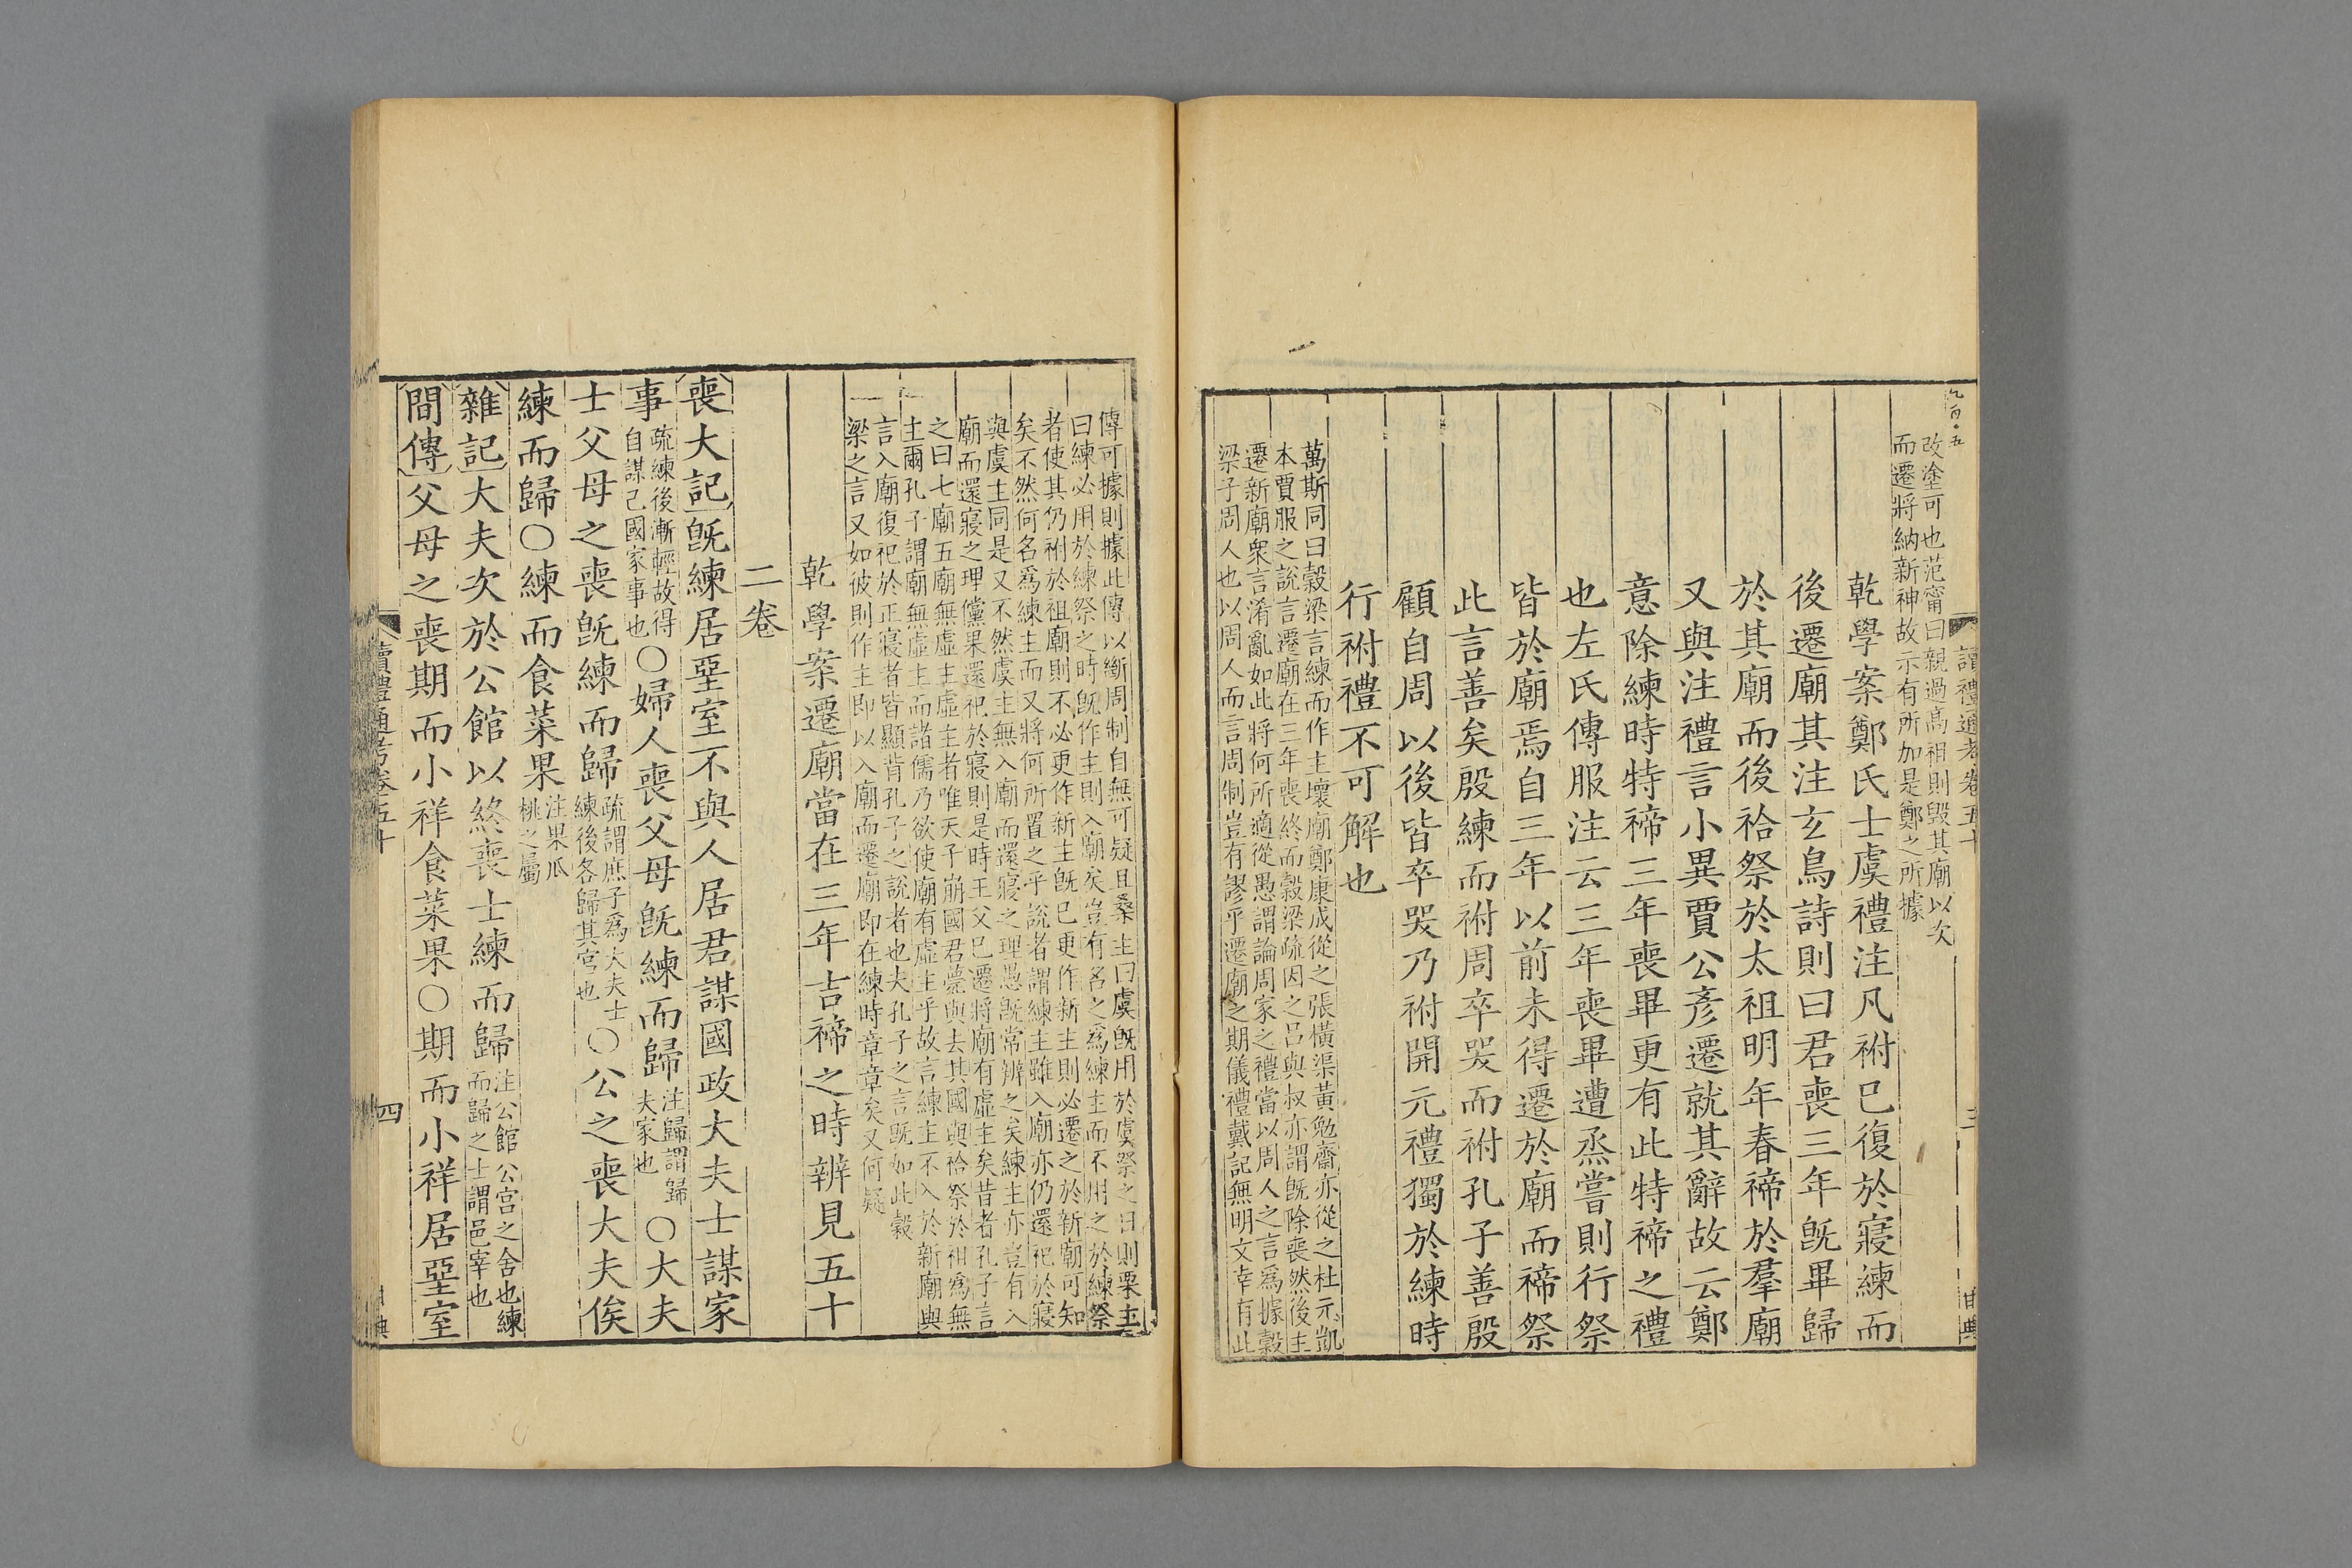 改塗可也范甯曰親過高祖則毀其廟以次
而遷將納新神故示有所加是鄭之所據
乾學案鄭氏士虞禮注凡祔已復於寢練而
後遷廟其注玄鳥詩則曰君喪三年旣畢歸
於其廟而後祫祭於太祖明年春禘於羣廟
又與注禮言小異賈公彥遷就其辭故云鄭
意除練時特禘三年喪畢更有此特禘之禮
也左氏傳服注云三年喪畢遭烝嘗則行祭
皆於廟焉自三年以前未得遷於廟而禘祭
此言善矣殷練而祔周卒哭而祔孔子善殷
顧自周以後皆卒哭乃祔開元禮獨於練時
行祔禮不可解也
萬斯同曰穀梁言練而作主壞廟鄭康成從之張橫渠黃勉齋亦從之杜元凱
本賈服之說言遷廟在三年喪終而穀梁疏因之呂與叔亦謂旣除喪然後主
遷新廟衆言淆亂如此將何所適從愚謂論周家之禮當以周人之言爲據穀
梁子周人也以周人而言周制豈有謬乎遷廟之期儀禮戴記無明文幸有此
傳可據則據此傳以斷周制自無可疑且桑主曰虞旣用於虞祭之日則栗主
曰練必用於練祭之時旣作主則入廟矣豈有名之爲練主而不用之於練祭
者使其仍祔於祖廟則不必更作新主旣已更作新主則必遷之於新廟可知
矣不然何名爲練主而又將何所置之乎說者謂練主雖入廟亦仍還祀於寢
與虞主同是又不然虞主無入廟而還寢之理愚旣常辨之矣練主亦豈有入
廟而還寢之理儻果還祀於寢則是時王父已遷將廟有虛主矣昔者孔子言
之曰七廟五廟無虛主虛主者唯天子崩國君薨與去其國與祫祭於祖爲無
主爾孔子謂廟無虛主而諸儒乃欲使廟有虛主乎故言練主不入於新廟與
言入廟復祀於正寢者皆顯背孔子之說者也夫孔子之言旣如此穀
梁之言又如彼則作主卽以入廟而遷廟卽在練時章章矣又何疑
乾學案遷廟當在三年吉禘之時辨見五十
二卷
喪大記旣練居堊室不與人居君謀國政大夫士謀家
事疏練後漸輕故得自謀己國家事也○婦人喪父母旣練而歸注歸謂歸夫家也○大夫
士父母之喪旣練而歸疏謂庶子爲大夫士練後各歸其宮也○公之喪大夫俟
練而歸○練而食菜果注果瓜桃之屬
雜記大夫次於公館以終喪士練而歸注公館公宮之舍也練而歸之士謂邑宰也
間傳父母之喪期而小祥食菜果○期而小祥居堊室
讀禮通考卷五十
四